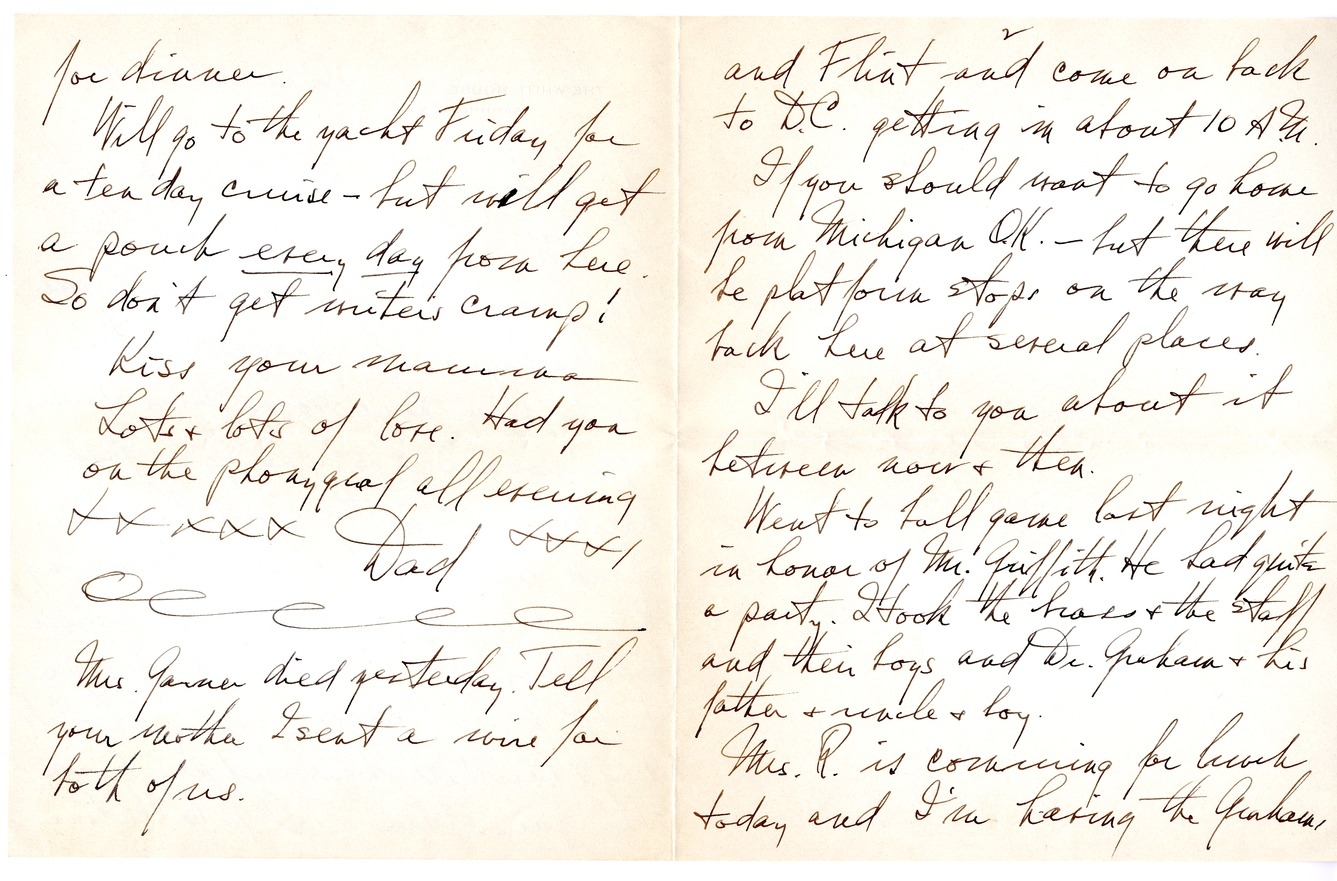 2
and Flint and come on back
to D.C. getting in about 10 A.M.
If you should want to go home
from Michigan O.K. – but there will
be platform stops on the way
back here at several places.
I'll talk to you about it
between now & then.
Went to ball game last night
in honor of Mr. Griffith. He had quite
a party. I took the brass & the staff
and their boys and Dr. Graham & his
father & uncle & boy.
Mrs. R. is comming for lunch
today and I'm having the Grahams
for dinner.
Will go to the yacht Friday for
a ten day cruise – but will get
a pouch every day from here.
So don't get writer's cramp!
Kiss your mamma
Lots & lots of love. Had you
on the phonygraf all evening
XX XXX Dad XXXX
Mrs. Garner died yesterday. Tell
your mother I sent a wire for
both of us.